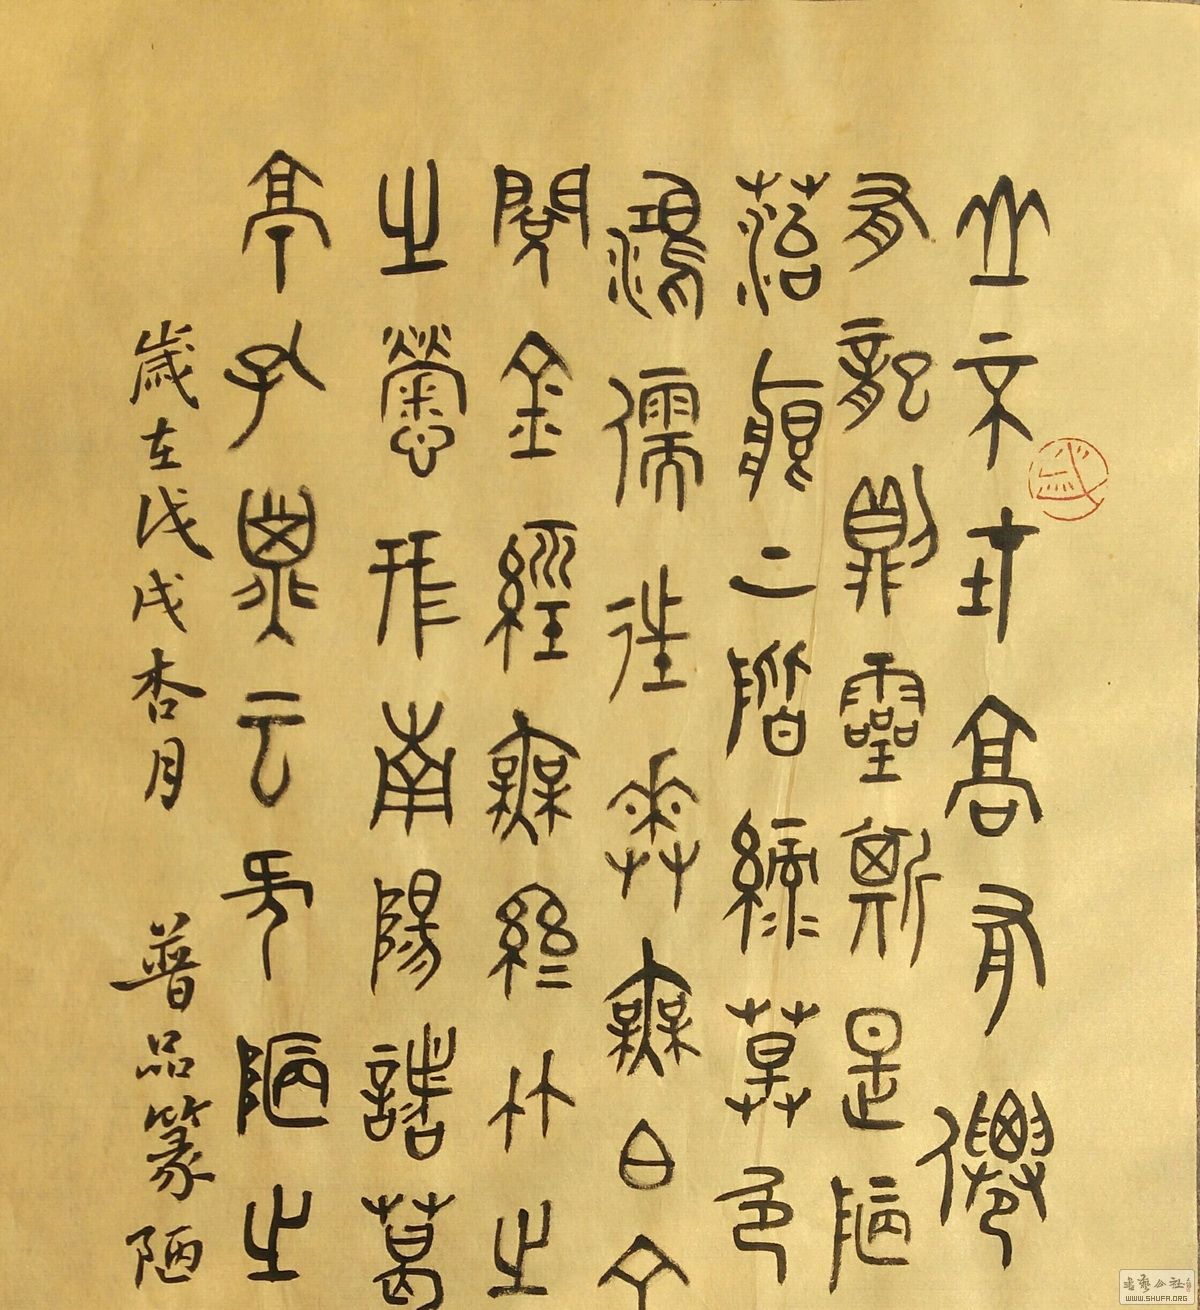 山不在高有僊
有龍則靈斯是陋
菭痕上階綠草色
鴻儒往來無白丁
閱金經無絲竹之
之勞形南陽諸葛
亭子云何陋之
歲在戊戌杏月 普品篆陋
书艺公社
WWW.SHUFA.ORG